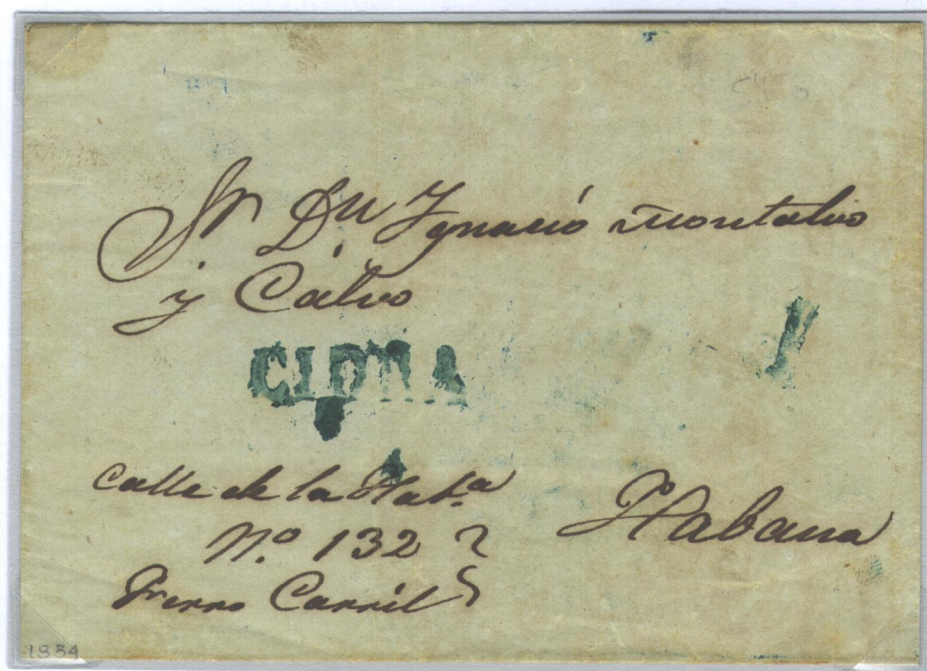 Sr. Dn Ygnacio Montalvo
y Calvo
CIDRA
1
Calle de la Haba.a
N.o 132
Habana
Fierro Carril
1854